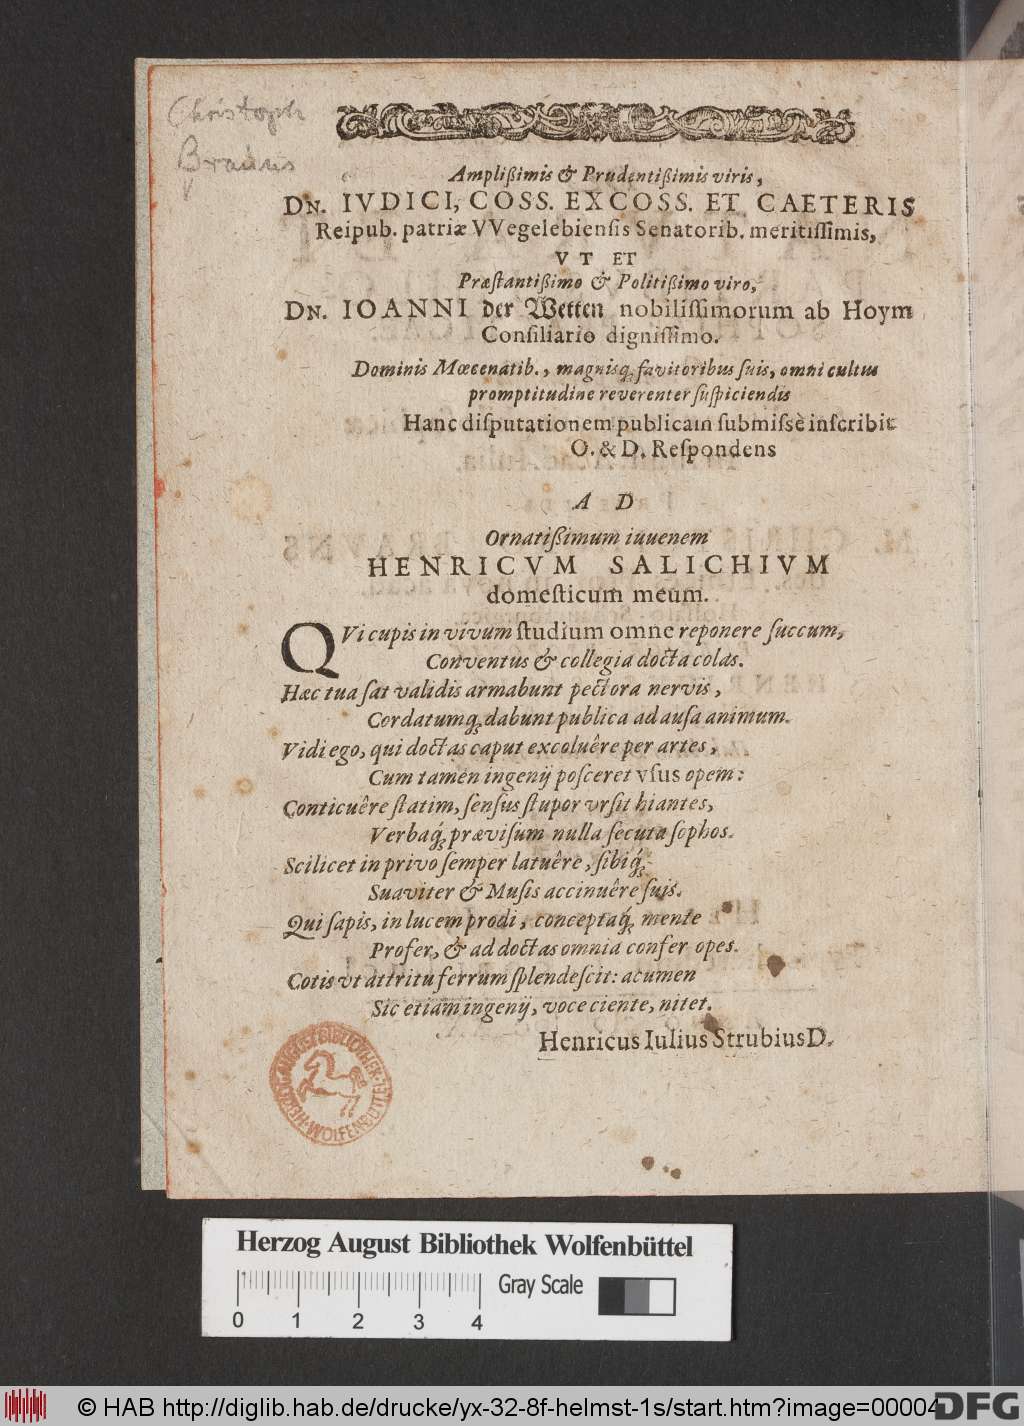 Christoph
Brauns
Ampliſsimis & Prudentiſsimis viris,
DN. IVDICI, COSS. EXCOSS. ET CAETERIS
Reipub. patriæ VVegelebienſis Senatorib. meritiſſimis,
VT ET
Præſtantiſsimo & Politiſsimo viro,
DN. IOANNI der Wetten nobiliſſimorum ab Hoym
Conſiliario digniſſimo.
Dominis Mœcenatib., magnisq́; favitoribus ſuis, omni cultus
promptitudine reverenter ſuſpiciendis
Hanc diſputationem publicam ſubmiſsè inſcribit
O. & D. Reſpondens
A D
Ornatiſsimum iuuenem
HENRICVM SALICHIVM
domeſticum meum.
QVi cupis in vivum ſtudium omne reponere ſuccum,
Conventus & collegia docta colas.
Hæc tua ſat validis armabunt pectora nervis,
Cordatumq́; dabunt publica ad auſa animum.
Vidi ego, qui doctas caput excoluêre per artes,
Cum tamen ingenij poſceret vſus opem:
Conticuêre ſtatim, ſenſus ſtupor vrſit hiantes,
Verbaq́; præviſum nulla ſecuta ſophos.
Scilicet in privo ſemper latuêre, ſibiq́;
Suaviter & Muſis accinuêre ſuis.
Qui ſapis, in lucem prodi, conceptaq́; mente
Profer, & ad doctas omnia confer opes.
Cotis vt attritu ferrum ſplendeſcit: acumen
Sic etiam ingenij, voce ciente, nitet.
Henricus Iulius Strubius D.
HERZOG AUGUST BIBLIOTHEK
WOLFENBÜTTEL
Herzog August Bibliothek Wolfenbüttel
Gray Scale
0 1 2 3 4
© HAB http://diglib.hab.de/drucke/yx-32-8f-helmst-1s/start.htm?image=00004
DFG